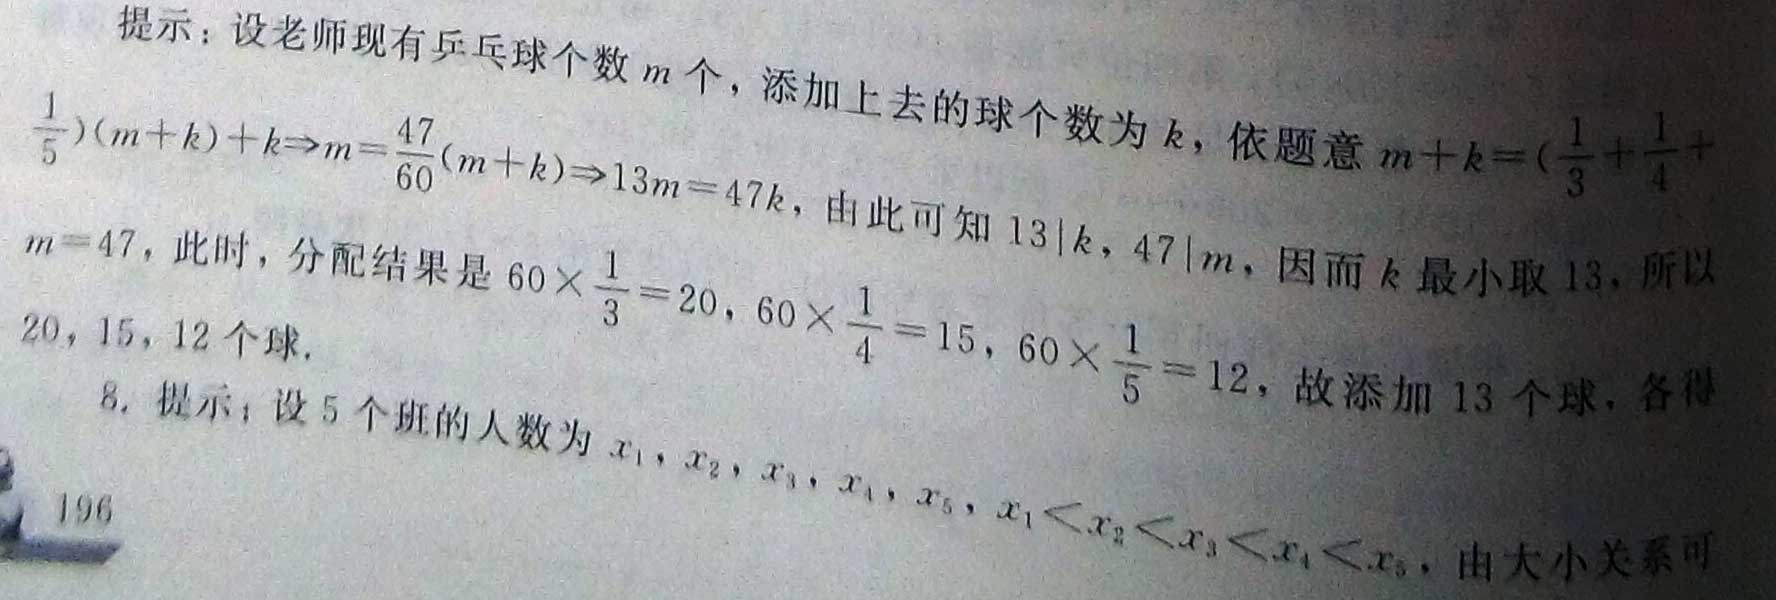 提示：设老师现有乒乓球个数 m 个，添加上去的球个数为 k，依题意 m＋k＝(1/3＋1/4＋
1/5)(m＋k)＋k⇒m＝47/60(m＋k)⇒13m＝47k，由此可知 13|k，47|m，因而 k 最小取 13，所以
m＝47，此时，分配结果是 60×1/3＝20，60×1/4＝15，60×1/5＝12，故添加 13 个球，各得
20，15，12 个球．
8．提示：设 5 个班的人数为 x₁，x₂，x₃，x₄，x₅，x₁＜x₂＜x₃＜x₄＜x₅，由大小关系可
196